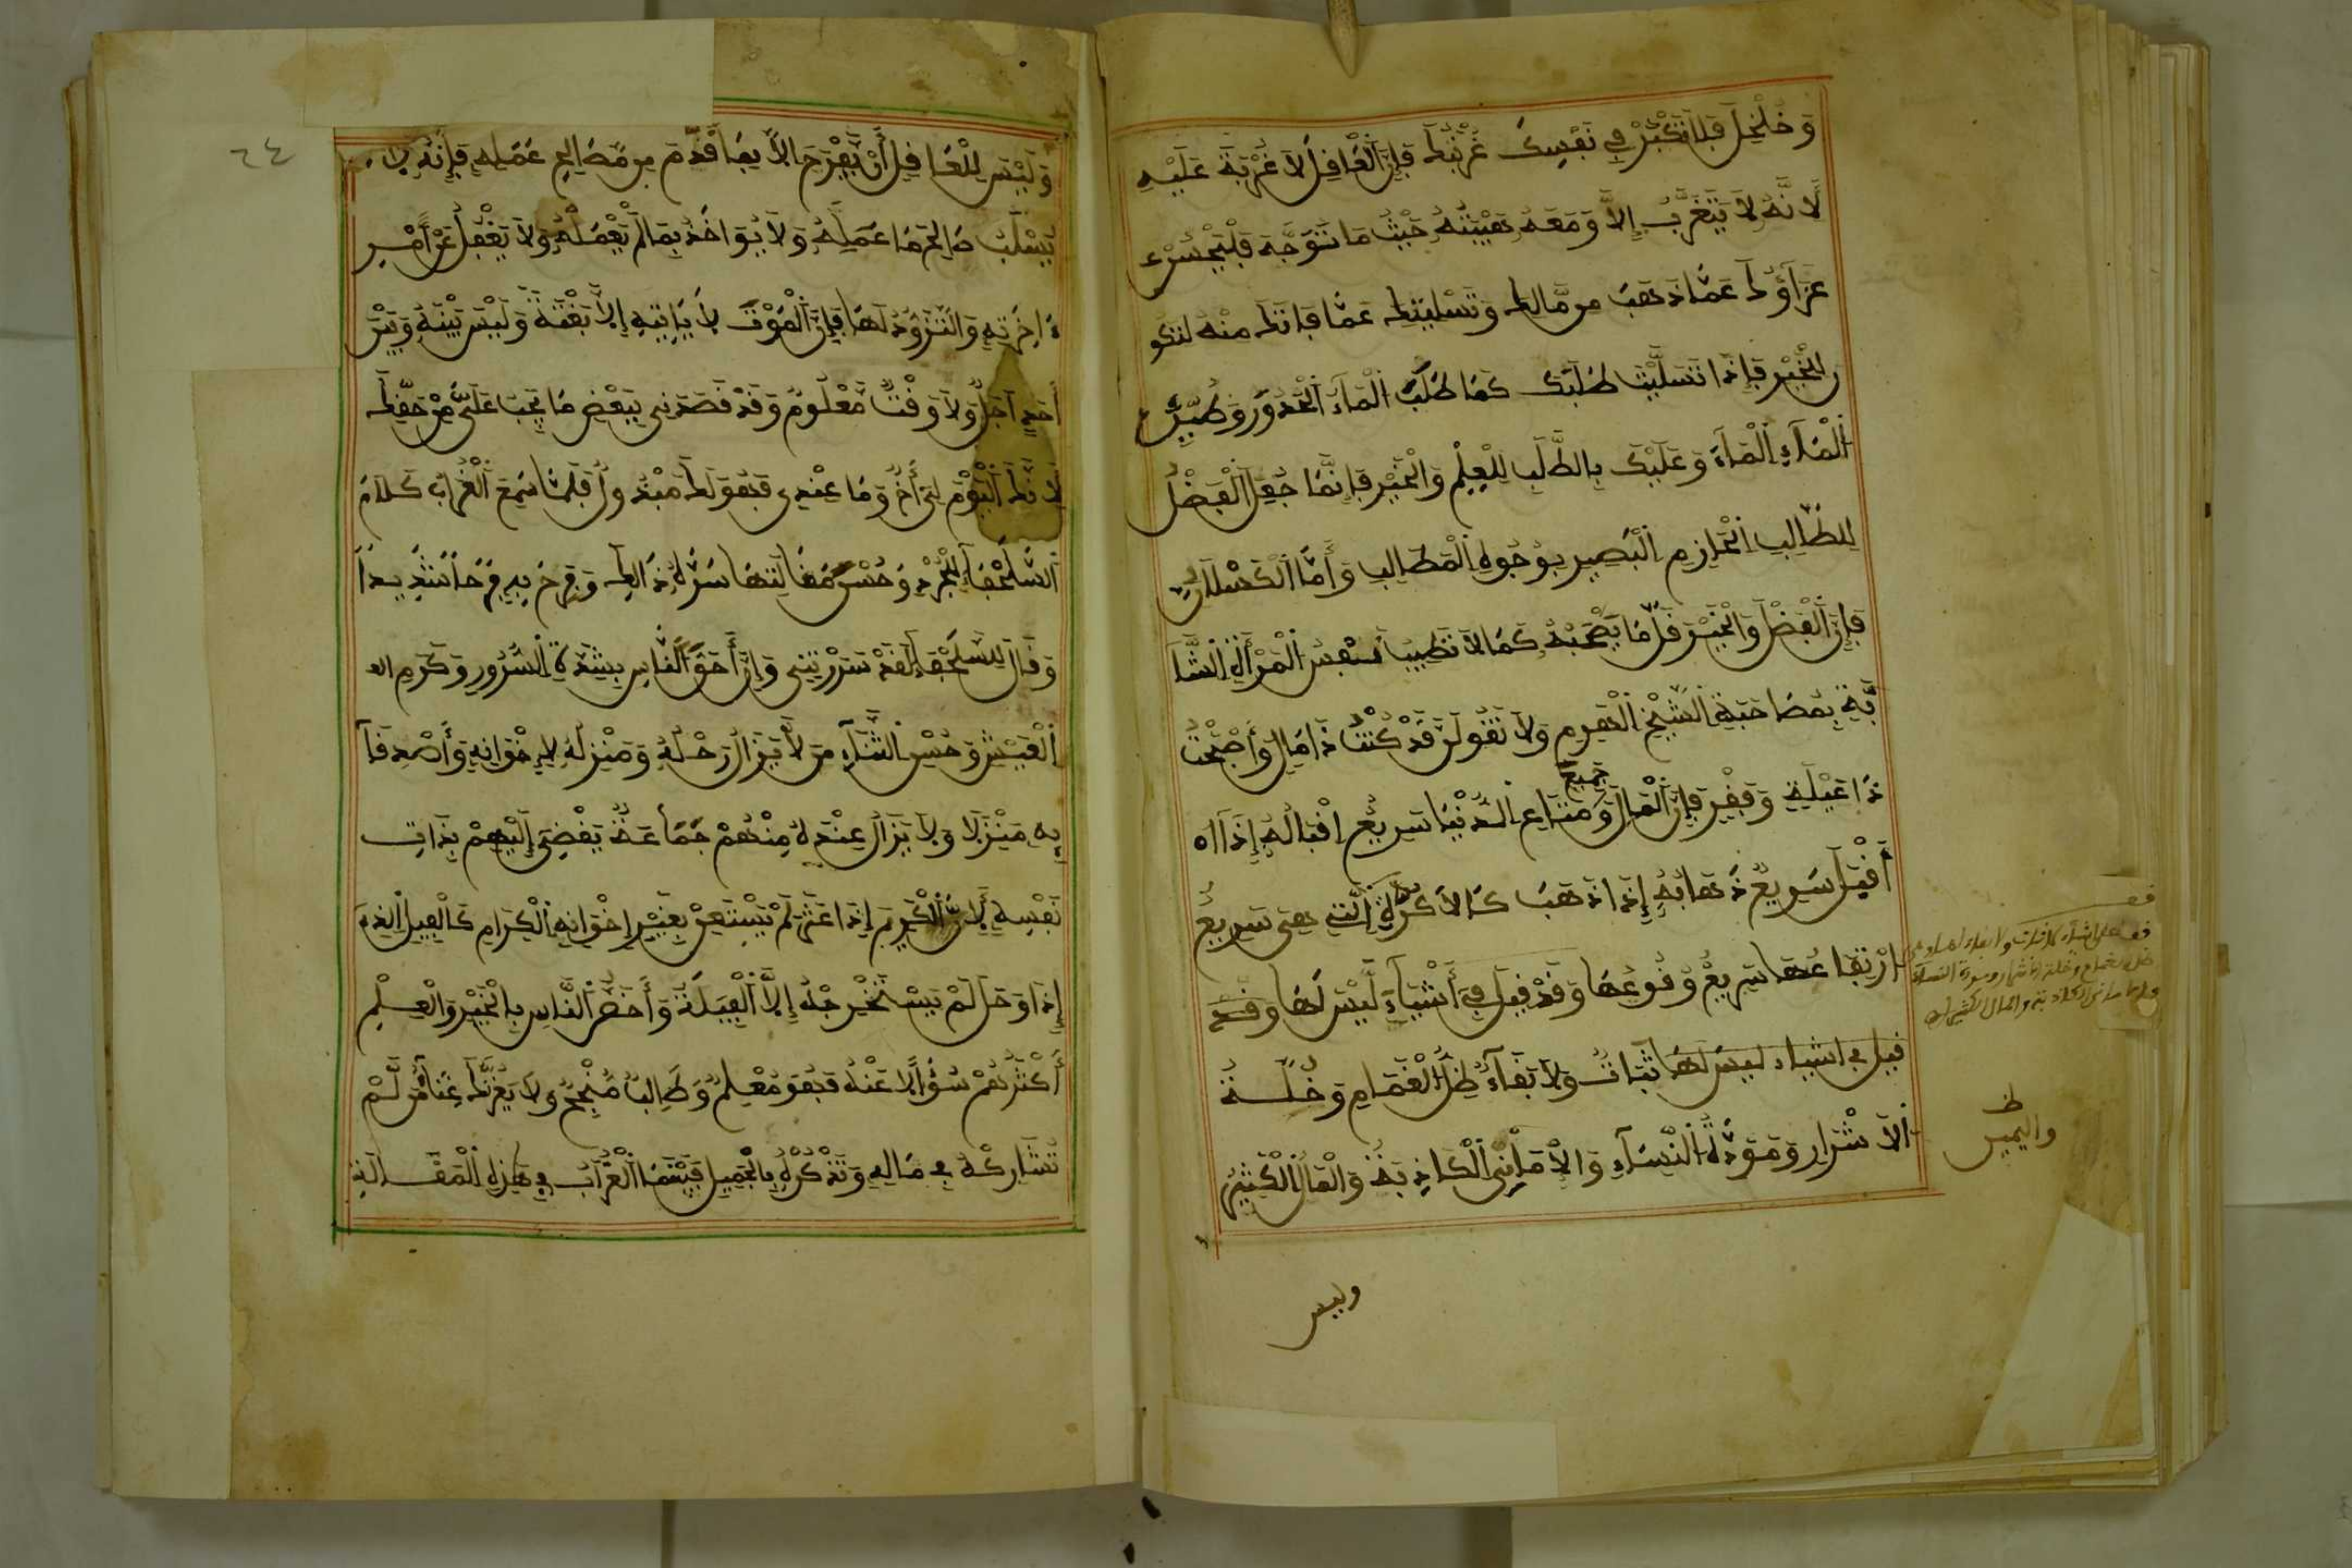 وَخَلْخِلَ فَلَا تَكْبُرْ فِي نَفْسِكَ غُرْبَتُكَ فَإِنَّ الْعَاقِلَ لَا غُرْبَةَ عَلَيْهِ
لَأَنَّهُ لَا يَتَغَرَّبُ إِلَّا وَمَعَهُ حَيْثُ مَا تَوَجَّهَ
عَزَاؤُكَ عَمَّا ذَهَبَ مِن مَّالِكَ وَتَسْلِيَتُكَ عَمَّا فَاتَكَ مِنْهُ
الْخَيْرِ فَإِذَا تَسَلَّيْتَ طَلَبَكَ كَمَا طَلَبَ الْمَاءُ الْحُدُورَ وَطَيْرُ
الْمَاءِ الْمَاءَ وَعَلَيْكَ بِالطَّلَبِ لِلْعِلْمِ وَالْخَيْرِ فَإِنَّمَا جُعِلَ الْفَضْلُ
لِلطَّالِبِ الْحَازِمِ الْبَصِيرِ بِوُجُوهِ الْمَطَالِبِ وَأَمَّا الْكَسْلَانُ
فَإِنَّ الْفَضْلَ وَالْخَيْرَ قَلَّ مَا يَصْحَبُهُ كَمَا لَا تَطِيبُ نَفْسُ الْمَرْأَةِ الشَّا
بَّةِ بِمُصَاحَبَةِ الشَّيْخِ الْهَرِمِ وَلَا تَقُولَنَّ قَدْ كُنْتُ ذَا مَالٍ وَأَصْبَحْتُ
ذَا عَيْلَةٍ وَفَقْرٍ فَإِنَّ الْمَالَ وَجَمِيعَ مَتَاعِ الدُّنْيَا سَرِيعٌ إِقْبَالُهُ إِذَا
أَقْبَلَ سَرِيعٌ ذَهَابُهُ إِذَا ذَهَبَ كَالْأُكْرَةِ الَّتِي هِيَ سَرِيعٌ
ارْتِفَاعُهَا سَرِيعٌ وُقُوعُهَا وَقَدْ قِيلَ فِي أَشْيَاءَ لَيْسَ لَهَا وَقَدْ
قِيلَ فِي أَشْيَاءَ لَيْسَ لَهَا ثَبَاتٌ وَلَا بَقَاءٌ ظِلُّ الْغَمَامِ وَخُلَّةُ
الْأَشْرَارِ وَمَوَدَّةُ النِّسَاءِ وَالْأَمَانِيُّ الْكَاذِبَةُ وَالْمَالُ الْكَثِيرُ
واليمين
وليس
٦٤
وَلَيْسَ لِلْعَاقِلِ أَنْ يَفْرَحَ إِلَّا بِمَا قَدَّمَ مِن صَالِحِ عَمَلِهِ فَإِنَّهُ لَا
يُسْلَبُ صَالِحَ مَا عَمِلَهُ وَلَا يُوَاخَذُ بِمَا لَمْ يَعْمَلْهُ وَلَا يَغْفُلُ عَنْ أَمْرِ
ءَاخِرَتِهِ وَالتَّزَوُّدِ لَهَا فَإِنَّ الْمَوْتَ لَا يَاتِيهِ إِلَّا بَغْتَةً وَلَيْسَ بَيْنَهُ وَبَيْنَ
أَحَدٍ أَجَلٌ وَلَا وَقْتٌ مَّعْلُومٌ وَقَدْ قَصَدَنِي بِبَعْضِ مَا يَجِبُ عَلَيَّ مِنْ حَقِّكَ
لِأَنَّكَ الْيَوْمَ لِي أَخٌ وَمَا عِنْدِي فَهُوَ لَكَ فَلَمَّا سَمِعَ الْغُرَابُ كَلَامَ
السُّلَحْفَاءِ لِلْجُرْدِ وَحُسْنَ مَقَالَتِهَا سَرَّهُ ذَالِكَ وَفَرِحَ بِهِ فَرَحًا شَدِيدًا
وَقَالَ لِلسُّلَحْفَاءِ لَقَدْ سَرَرْتِنِي وَإِنَّ أَحَقَّ النَّاسِ بِشِدَّةِ السُّرُورِ وَكَرَمِ
الْعَيْشِ وَحُسْنِ الثَّنَاءِ مَن لَّا يَزَالُ رَحْلُهُ وَمَنْزِلُهُ لِإِخْوَانِهِ وَأَصْدِقَا
بِهِ مَنْزِلًا وَلَا يَزَالُ عِنْدَهُ مِنْهُمْ جَمَاعَةٌ يَفْضِي إِلَيْهِمْ بِذَاتِ
نَفْسِهِ لِأَنَّ الْكَرِيمَ إِذَا عَثَرَ لَمْ يَسْتَعِنْ بِغَيْرِ إِخْوَانِهِ الْكِرَامِ كَالْفِيلِ الَّذِي
إِذَا وَحَلَ لَمْ يَسْتَخْرِجْهُ إِلَّا الْفِيَلَةُ وَأَحَقُّ النَّاسِ بِالْخَيْرِ وَالْعِلْمِ
أَكْثَرُهُمْ سُؤَالًا عَنْهُ فَهُوَ مُعْلِمٌ وَطَالِبٌ مُنْجِحٌ وَلَا يَغُرَّنَّكَ غِنَا مَن لَّمْ
تُشَارِكْهُ فِي مَالِهِ وَتَذْكُرْهُ بِالْجَمِيلِ فَبَيْنَمَا الْغُرَابُ فِي هَذِهِ الْمَقَالَةِ